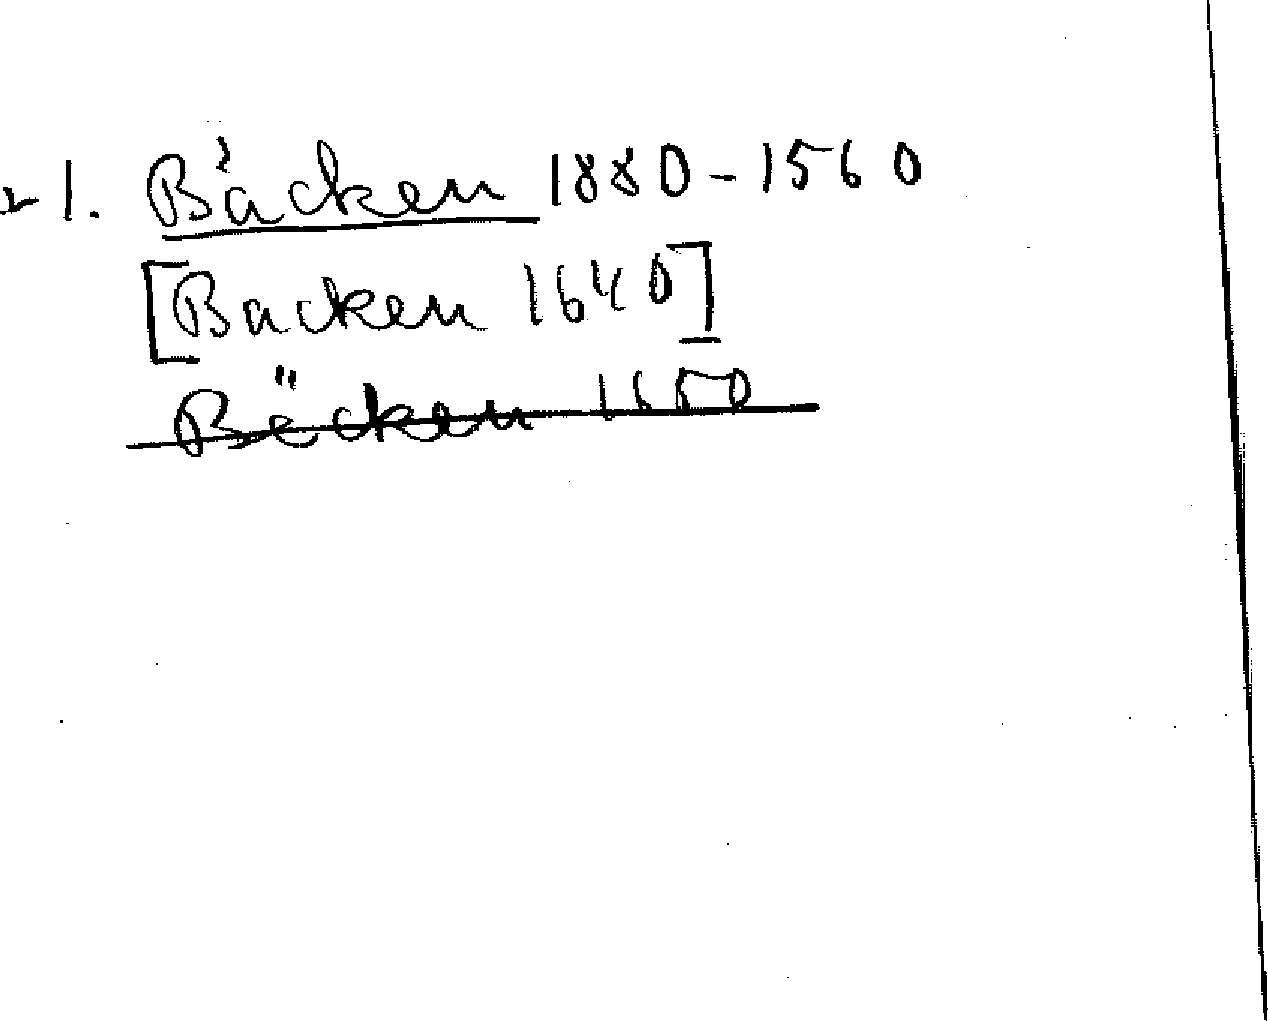 1. Bäcken 1880-1560
[Backen 1640]
Bäcken 1650